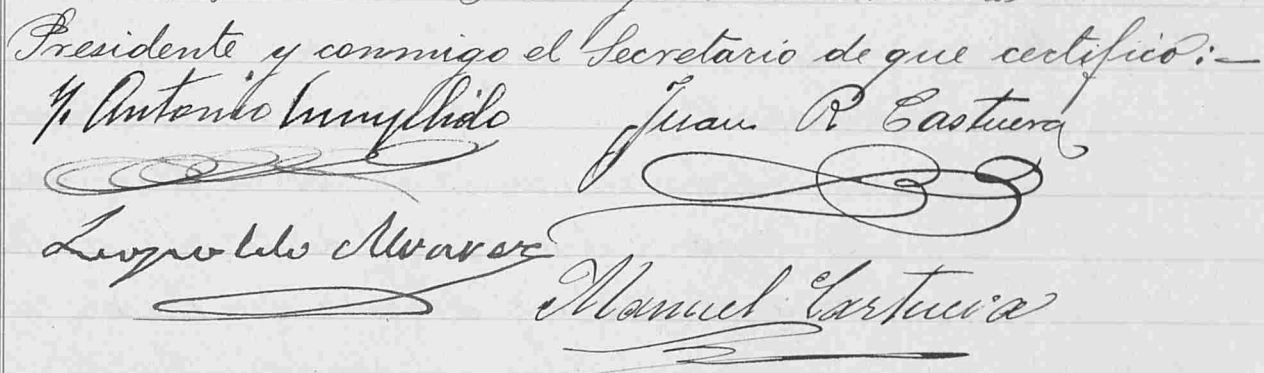 Presidente y conmigo el Secretario de que certifico:—
Antonio Juan R Castuera
Leopoldo Alvarez
Manuel Castuera